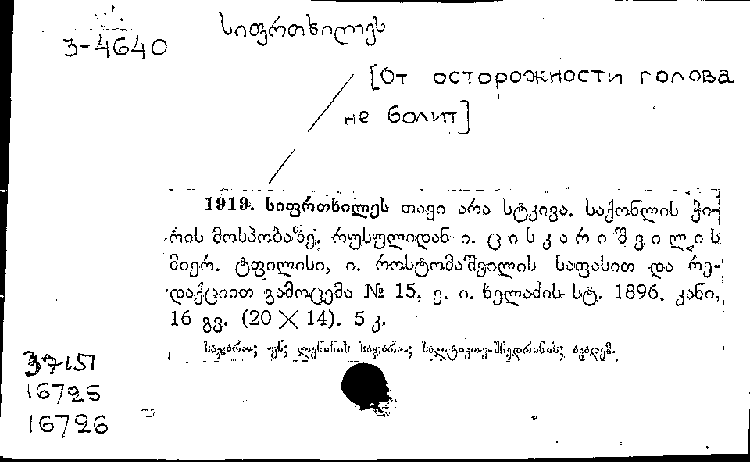 3-4640
სიფრთხილეს
[От осторожности голова
не болит]
1919. სიფრთხილეს თავი არა სტკივა. საქონლის ჭი-
რის მოსპობაზე. რუსულიდან ი. ცისკარიშვილის
მიერ. ტფილისი, ი. როსტომაშვილის საფასით და რე-
დაქციით გამოცემა № 15, ე. ი. ხელაძის სტ. 1896. კანი,
16 გვ. (20 X 14). 5 კ.
საჯარო; უნ; ლენინის საჯარო; სალტიკოვ-შჩედრინის; აკადემ.
37151
16725
16726